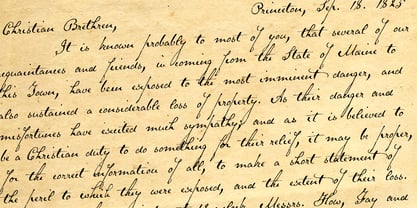 Princeton, Sep. 18. 1825
Christian Brethren,
It is known probably to most of you, that several of our
quaintances and friends, in coming from the State of Maine to
this Town, have been exposed to the most imminent danger, and
also sustained a considerable loss of property. As their danger and
misfortunes have excited much sympathy and as it is believed to
be a Christian duty to do something for their relief, it may be proper,
for the correct information of all, to make a short statement of
the peril to which they were exposed, and the extent of their loss.
Messrs. How, Fay and